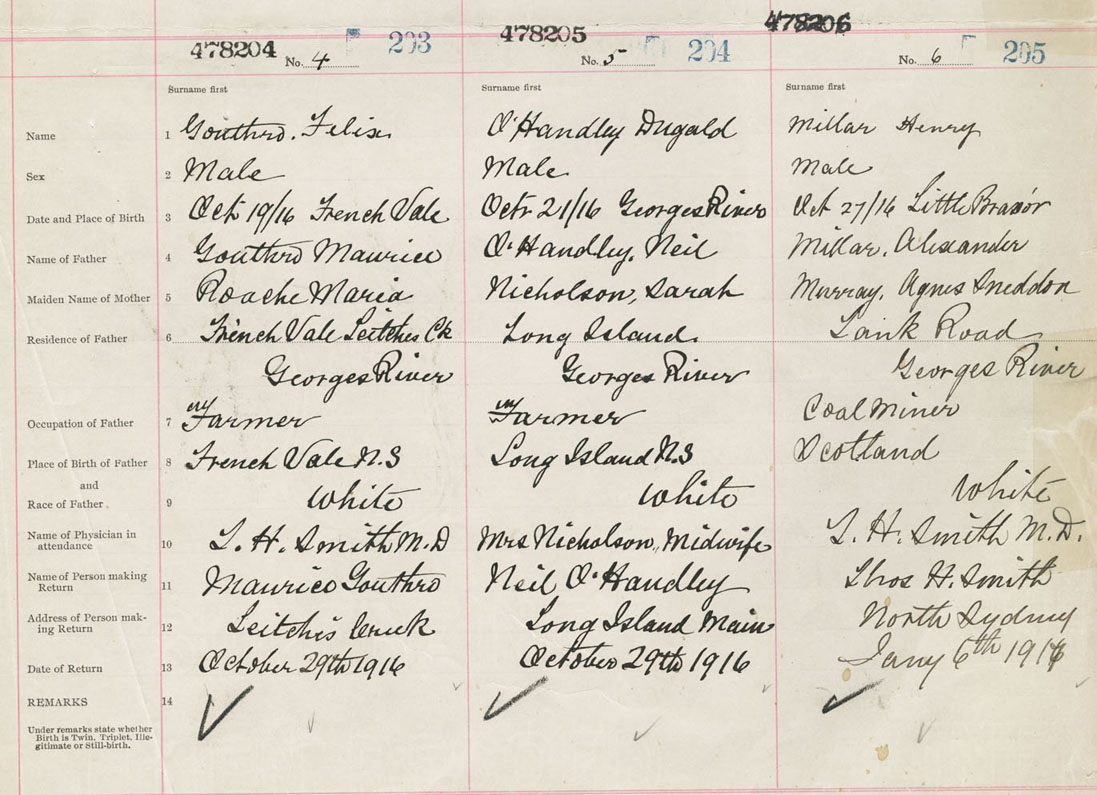 478204 No. 4 203 478205 No. 5 204 478206 No. 6 205
Surname first Surname first Surname first
Name 1 Gouthro. Felix. O'Handley Dugald Millar Henry
Sex 2 Male Male Male
Date and Place of Birth 3 Oct 19/16 French Vale Octr 21/16 Georges River Oct 27/16 Little Bras'dor
Name of Father 4 Gouthro Maurice O'Handley, Neil Millar, Alexander
Maiden Name of Mother 5 Roache Maria Nicholson, Sarah Murray, Agnes Sneddon
Residence of Father 6 French Vale Leitches Ck Long Island. Road
Georges River Georges River Georges River
Occupation of Father 7 Farmer Farmer Coal Miner
Place of Birth of Father 8 French Vale N.S Long Island N.S Scotland
and
Race of Father 9 White White White
Name of Physician in
attendance 10 L. H. Smith M.D Mrs Nicholson, Midwife L. H. Smith M.D.
Name of Person making
Return 11 Maurice Gouthro Neil O'Handley Thos H. Smith
Address of Person mak-
ing Return 12 Leitchis Creek Long Island Main North Sydney
Date of Return 13 October 29th 1916 October 29th 1916 Jany 6th
REMARKS 14
Under remarks state whether
Birth is Twin, Triplet, Ille-
gitimate or Still-birth.